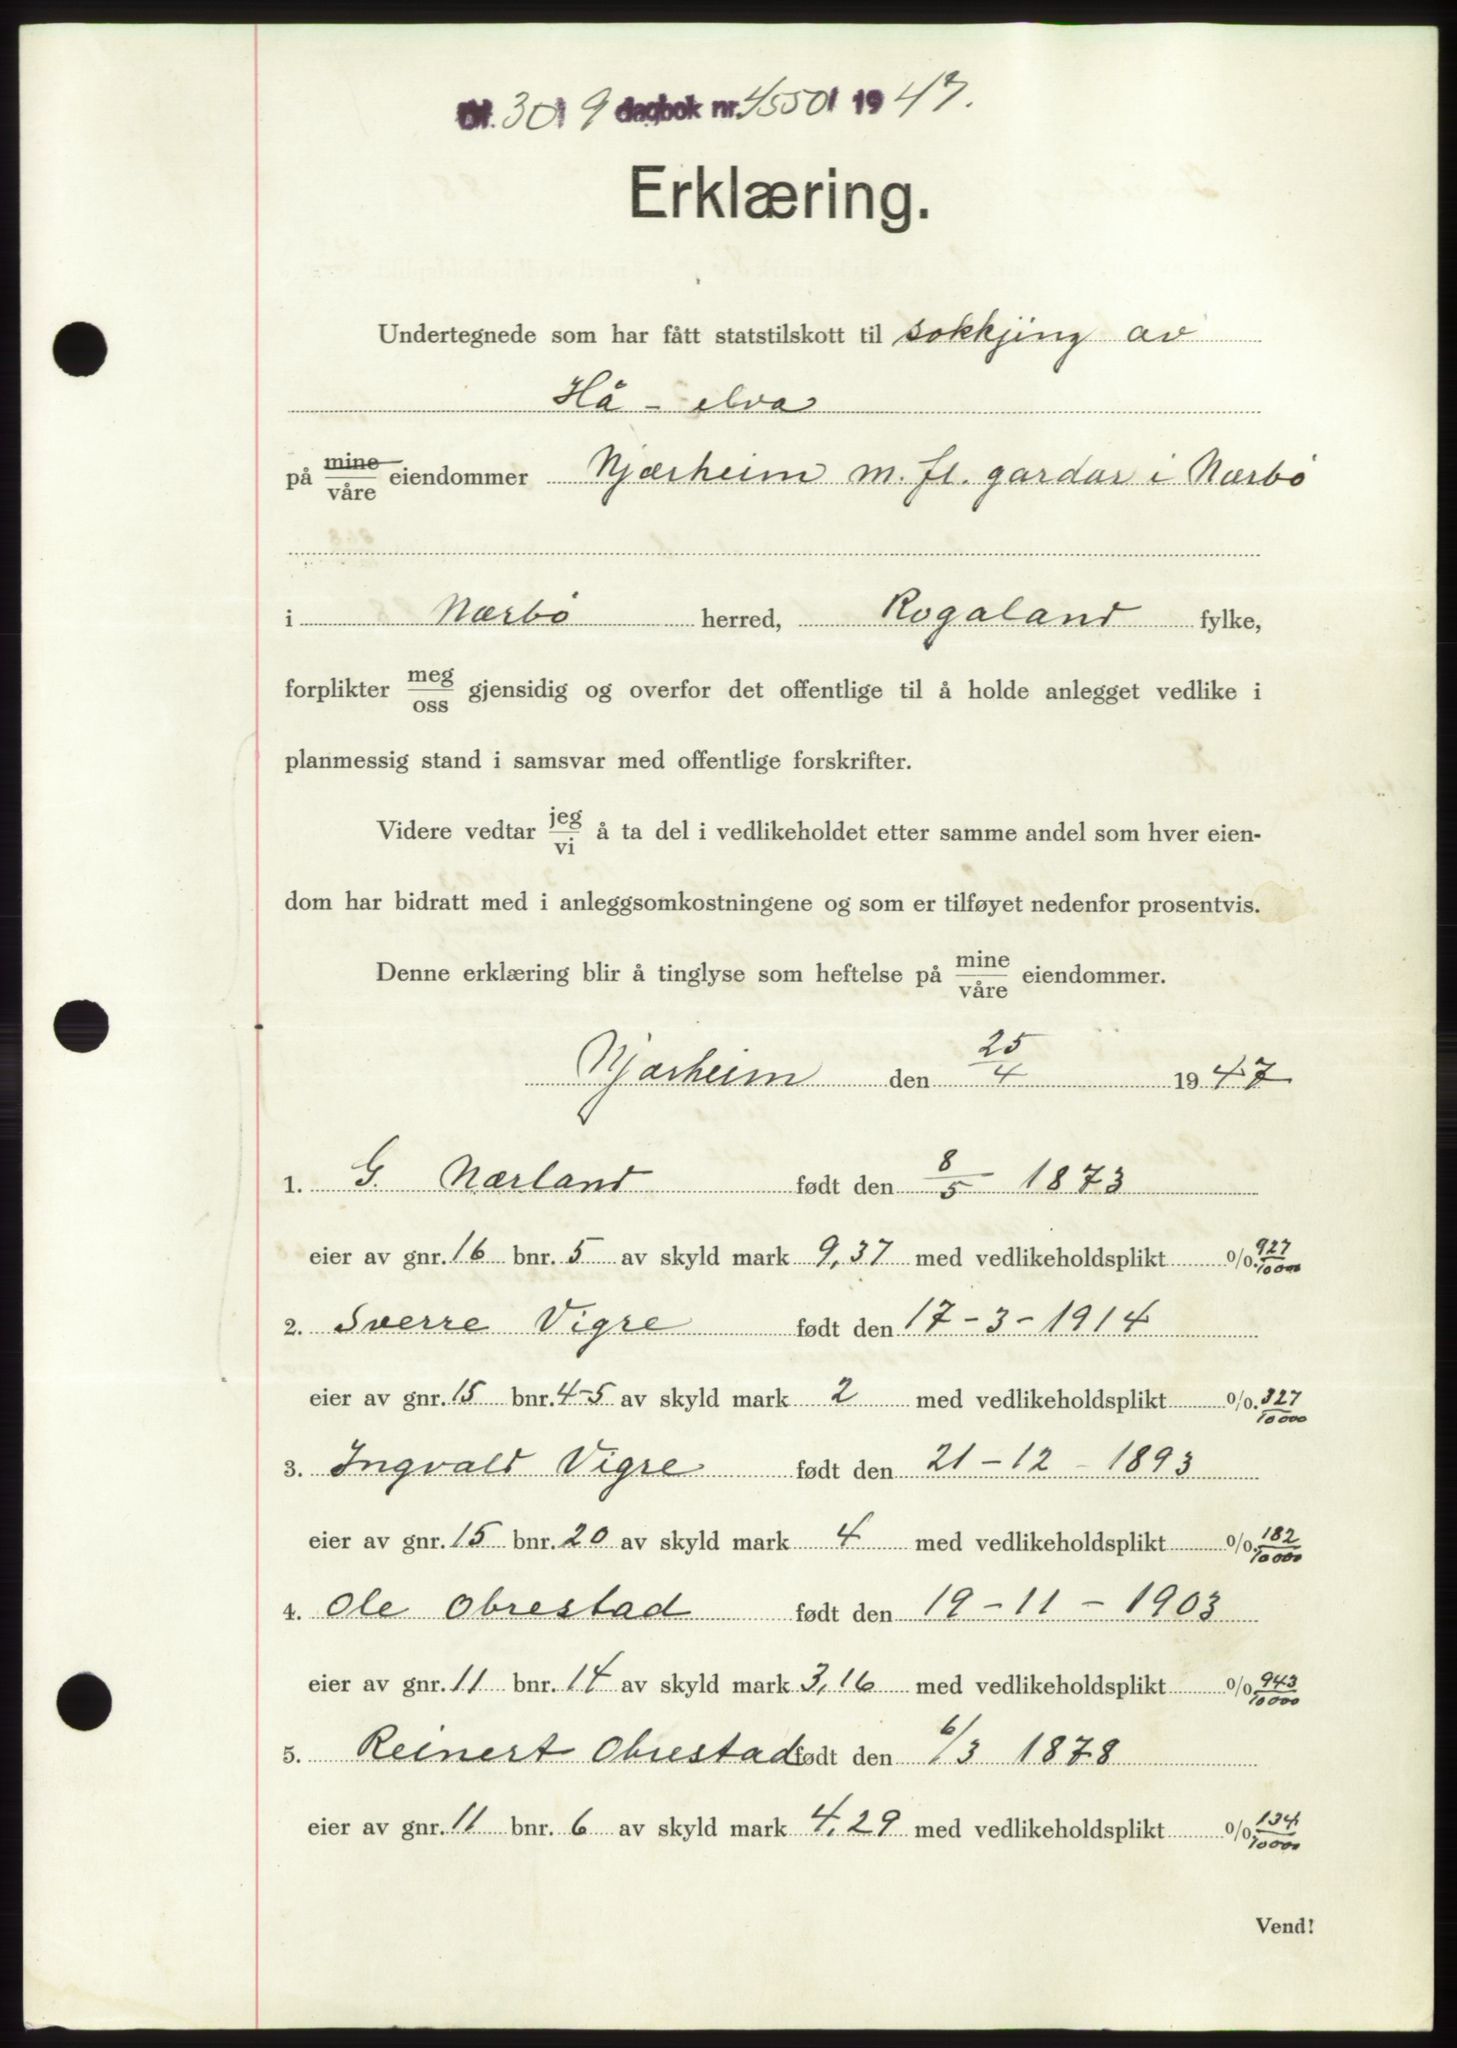 Df. 30/9 dagbok nr. 4550/ 1947.
Erklæring.
Undertegnede som har fått statstilskott til sokkjing av
Hå - elva
på mine/våre eiendommer Njærheim m. fl. gardar i Nærbö
i Nærbö herred, Rogaland fylke,
forplikter meg/oss gjensidig og overfor det offentlige til å holde anlegget vedlike i
planmessig stand i samsvar med offentlige forskrifter.
Videre vedtar jeg/vi å ta del i vedlikeholdet etter samme andel som hver eien-
dom har bidratt med i anleggsomkostningene og som er tilføyet nedenfor prosentvis.
Denne erklæring blir å tinglyse som heftelse på mine/våre eiendommer.
Njærheim den 25/4 1947
1. G. Nærland født den 8/5 1873
eier av gnr. 16 bnr. 5 av skyld mark 9,37 med vedlikeholdsplikt 0/0. 927/10000
2. Sverre Vigre født den 17-3-1914
eier av gnr. 15 bnr. 4-5 av skyld mark 2 med vedlikeholdsplikt 0/0. 327/10000
3. Ingvald Vigre født den 21-12-1893
eier av gnr. 15 bnr. 20 av skyld mark 4 med vedlikeholdsplikt 0/0. 182/10000
4. Ole Obrestad født den 19-11-1903
eier av gnr. 11 bnr. 14 av skyld mark 3,16 med vedlikeholdsplikt 0/0. 943/10000
5. Reinert Obrestad født den 6/3 1878
eier av gnr. 11 bnr. 6 av skyld mark 4,29 med vedlikeholdsplikt 0/0. 134/10000
Vend!